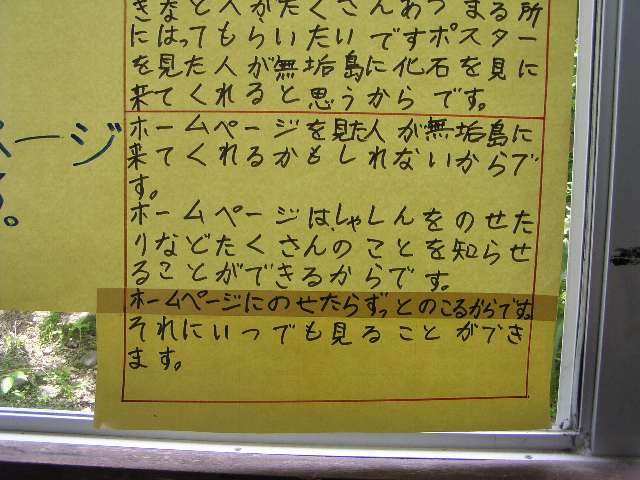 きなど人がたくさんあつまる所
にはってもらいたいですポスター
を見た人が無垢島に化石を見に
来てくれると思うからです。
ホームページを見た人が無垢島に
来てくれるかもしれないからで
す。
ホームページは、しゃしんをのせた
りなどたくさんのことを知らせ
ることができるからです。
ホームページにのせたらずっとのこるからです。
それにいつでも見ることができ
ます。
ページ
す。